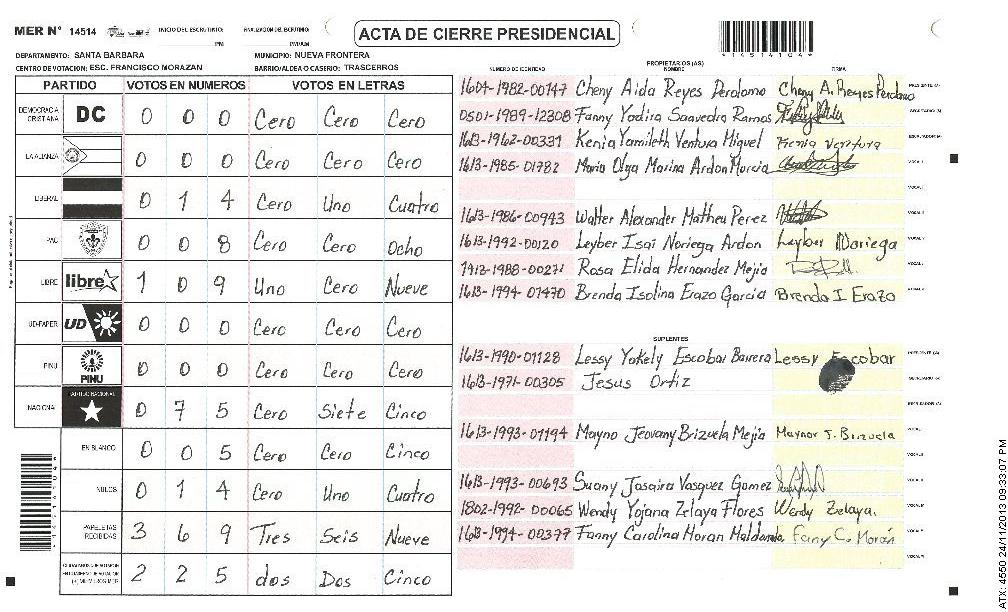 MER N° 14514 INICIO DEL ESCRUTINIO: PM FINALIZACION DEL ESCRUTINIO: PM/AM
ACTA DE CIERRE PRESIDENCIAL
*14514104*
DEPARTAMENTO: SANTA BARBARA MUNICIPIO: NUEVA FRONTERA
CENTRO DE VOTACION: ESC. FRANCISCO MORAZAN BARRIO/ALDEA O CASERIO: TRASCERROS
PARTIDO VOTOS EN NUMEROS VOTOS EN LETRAS
DEMOCRACIA CRISTIANA DC 0 0 0 Cero Cero Cero
LA ALIANZA 0 0 0 Cero Cero Cero
LIBERAL 0 1 4 Cero Uno Cuatro
PAC 0 0 8 Cero Cero Ocho
LIBRE libre 1 0 9 Uno Cero Nueve
UD-FAPER UD 0 0 0 Cero Cero Cero
PINU PINU 0 0 0 Cero Cero Cero
NACIONAL PARTIDO NACIONAL 0 7 5 Cero Siete Cinco
EN BLANCO 0 0 5 Cero Cero Cinco
NULOS 0 1 4 Cero Uno Cuatro
PAPELETAS RECIBIDAS 3 6 9 Tres Seis Nueve
(+) MIEMBROS MER 2 2 5 dos Dos Cinco
PROPIETARIOS (AS)
NUMERO DE IDENTIDAD NOMBRE FIRMA
1604-1982-00147 Cheny Aida Reyes Perdomo Cheny A. Reyes Perdomo PRESIDENTE (A)
0501-1989-12308 Fanny Yadira Saavedra Ramos SECRETARIO (A)
1613-1962-00331 Kenia Yamileth Ventura Miguel Kenia Ventura ESCRUTADOR (A)
1613-1985-01782 Maria Olga Marina Ardon Murcia VOCAL I
1613-1986-00943 Walter Alexander Matheu Perez
1613-1992-00120 Leyber Isai Noriega Ardon Leyber Noriega
1412-1988-00271 Rosa Elida Hernandez Mejia
1613-1994-01470 Brenda Isolina Erazo Garcia Brenda I Erazo
SUPLENTES
1613-1990-01128 Lessy Yokely Escobar Barrera Lessy Escobar PRESIDENTE (A)
1613-1971-00305 Jesus Ortiz SECRETARIO (A)
ESCRUTADOR (A)
1613-1993-01194 Mayno Jeovany Brizuela Mejia Maynor J. Brizuela
1613-1993-00693 Suany Josaira Vasquez Gomez
1802-1992-00065 Wendy Yojana Zelaya Flores Wendy Zelaya.
1613-1994-00377 Fanny Carolina Moran Maldonado Fany C. Morán
ATX: 4550 24/11/2013 09:33:07 PM